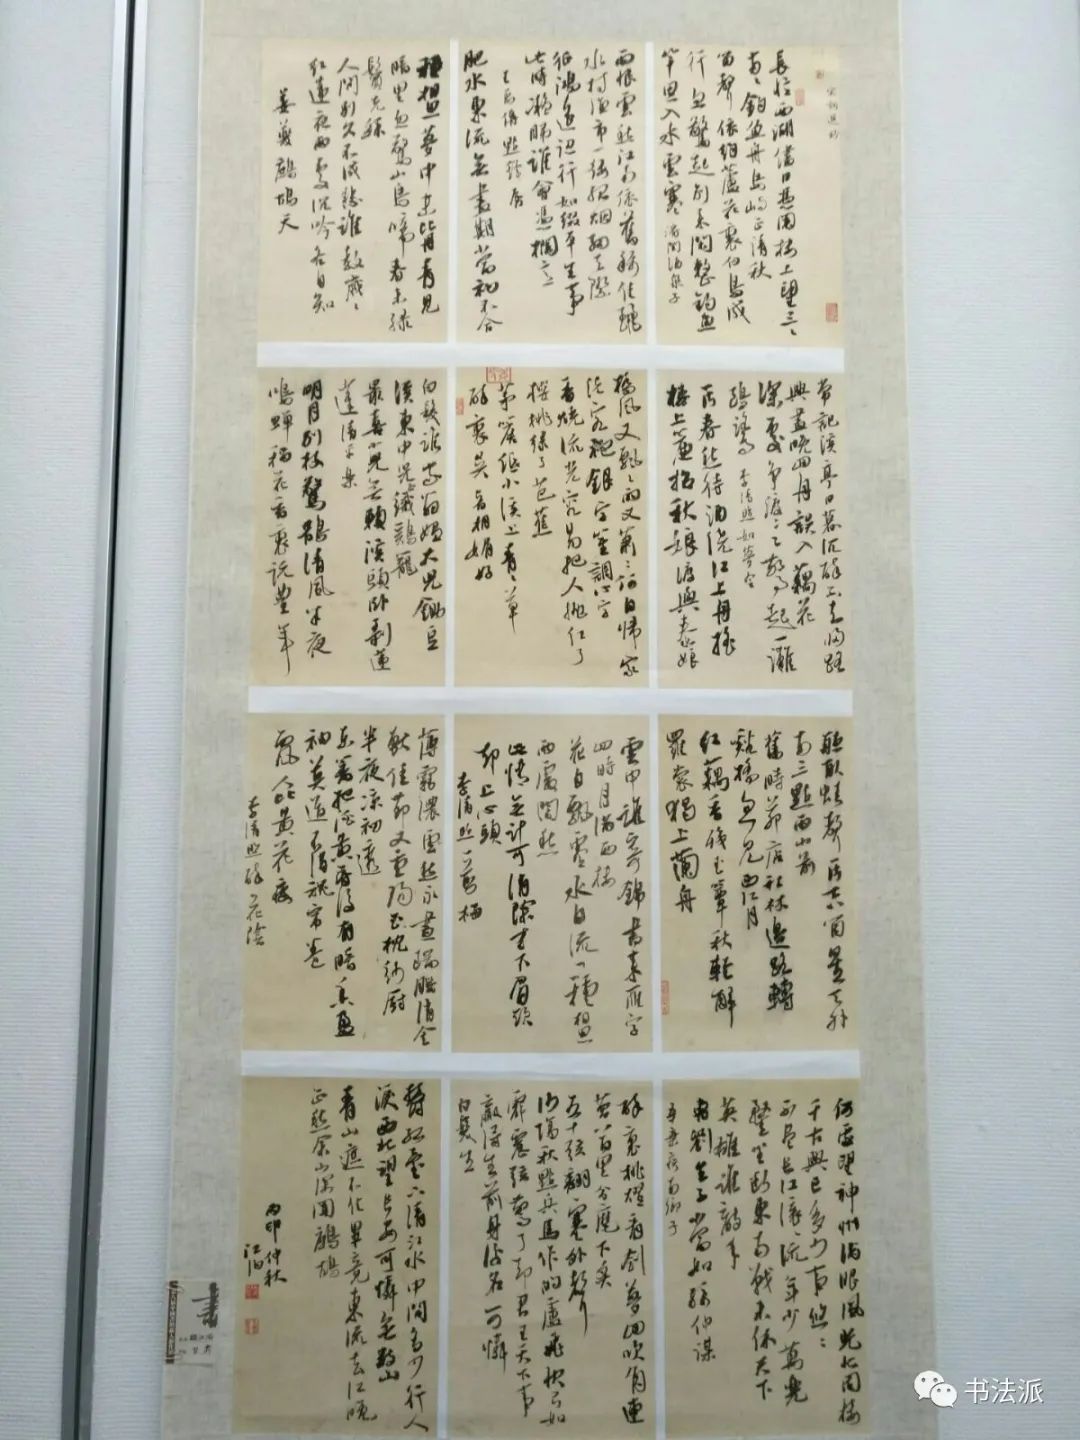 宋詞選抄
長憶西湖儘日憑闌樓上望三三
兩兩釣魚舟島嶼正清秋
笛聲依約蘆花裏白鳥成
行忽驚起別來閒整釣魚
竿思入水雲寒 潘閬酒泉子
雨恨雲愁江南依舊稱佳麗
水村漁市一縷孤烟細天際
征鴻遥認行如綴平生事
此時凝睇誰會憑欄意
王禹偁點絳唇
肥水東流無盡期當初不合
種相思夢中未比丹青見
暗里忽驚山鳥啼春未綠
鬢先絲
人間別久不成悲誰教歲歲
紅蓮夜兩處沉吟各自知
姜夔鷓鴣天
常記溪亭日暮沉醉不知歸路
興盡晚回舟誤入藕花
深處爭渡爭渡驚起一灘
鷗鷺 李清照如夢令
一片春愁待酒澆江上舟搖
樓上簾招秋娘渡與泰娘
橋風又飄飄雨又蕭蕭何日歸家
洗客袍銀字笙調心字
香燒流光容易把人拋紅了
櫻桃綠了芭蕉
茅簷低小溪上青青草
醉裏吳音相媚好
白髮誰家翁媼大兒鋤豆
溪東中兒織鷄籠
最喜小兒無賴溪頭臥剥蓮
蓬清平樂
明月別枝驚鵲清風半夜
鳴蟬稻花香裏說豐年
聽取蛙聲一片七八個星天外
兩三點雨山前
舊時茆店社林邊路轉
谿橋忽見 西江月
紅藕香殘玉簟秋輕解
羅裳獨上蘭舟
雲中誰寄錦書來雁字
回時月滿西樓
花自飄零水自流一種相思
兩處閒愁
此情無計可消除才下眉頭
却上心頭
李清照一剪梅
薄霧濃雲愁永晝瑞腦消金
獸佳節又重陽玉枕紗厨
半夜涼初透
東籬把酒黃昏後有暗香盈
袖莫道不消魂簾卷
西風人比黃花瘦
李清照醉花陰
何處望神州滿眼風光北固樓
千古興亡多少事悠悠
不盡長江滾滾流年少萬兜
鍪坐斷東南戰未休天下
英雄誰敵手
曹劉生子當如孫仲謀
辛棄疾南鄉子
醉裏挑燈看劍夢回吹角連
營八百里分麾下炙
五十弦翻塞外聲
沙場秋點兵馬作的盧飛快弓如
霹靂弦驚了却君王天下事
贏得生前身後名可憐
白髮生
鬱孤臺下清江水中間多少行人
淚西北望長安可憐無數山
青山遮不住畢竟東流去江晚
正愁余山深聞鷓鴣
仲秋
书法派